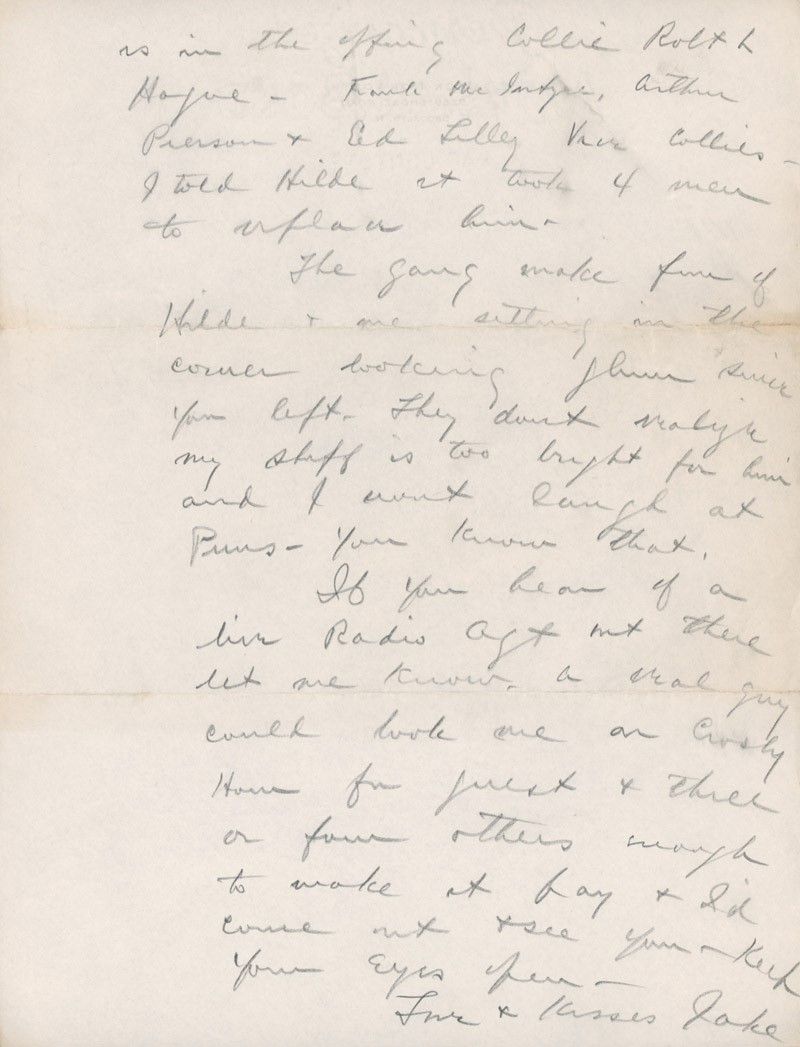 is in the offing Collie Robt L
Hague - Frank McIntyre, Arthur
Pierson & Ed Lilley Vice Collies -
I told Hilde it took 4 men
to replace him -
The gang make fun of
Hilde & me sitting in the
corner looking glum since
you left. They dont realize
my stuff is too bright for him
and I wont laugh at
Puns - You know that.
If you hear of a
live Radio Agt out there
let me know. a real guy
could book me on Crosby
Hour for guest & three
or four others enough
to make it pay & I'd
come out & see you - Keep
your Eyes open -
Love & Kisses Jake